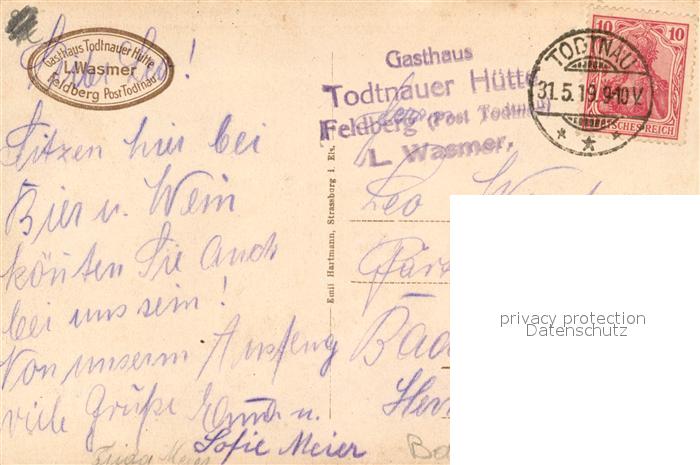 Gasthaus Todtnauer Hütte
L. Wasmer
Feldberg Post Todtnau
Gasthaus
Todtnauer Hütte
Feldberg (Post Todtnau)
L. Wasmer.
TODTNAU
31.5.19.9-10V.
10
10
DEUTSCHES REICH
Lieber Leo!
Sitzen hier bei
Bier u. Wein
könten Sie Auch
bei uns sein!
Von unserm Ausfleug
viele Grüße Emma u.
Sofie Meier
Frida Meier
Emil Hartmann, Strassburg i. Els.
Herrn
Leo
privacy protection
Datenschutz